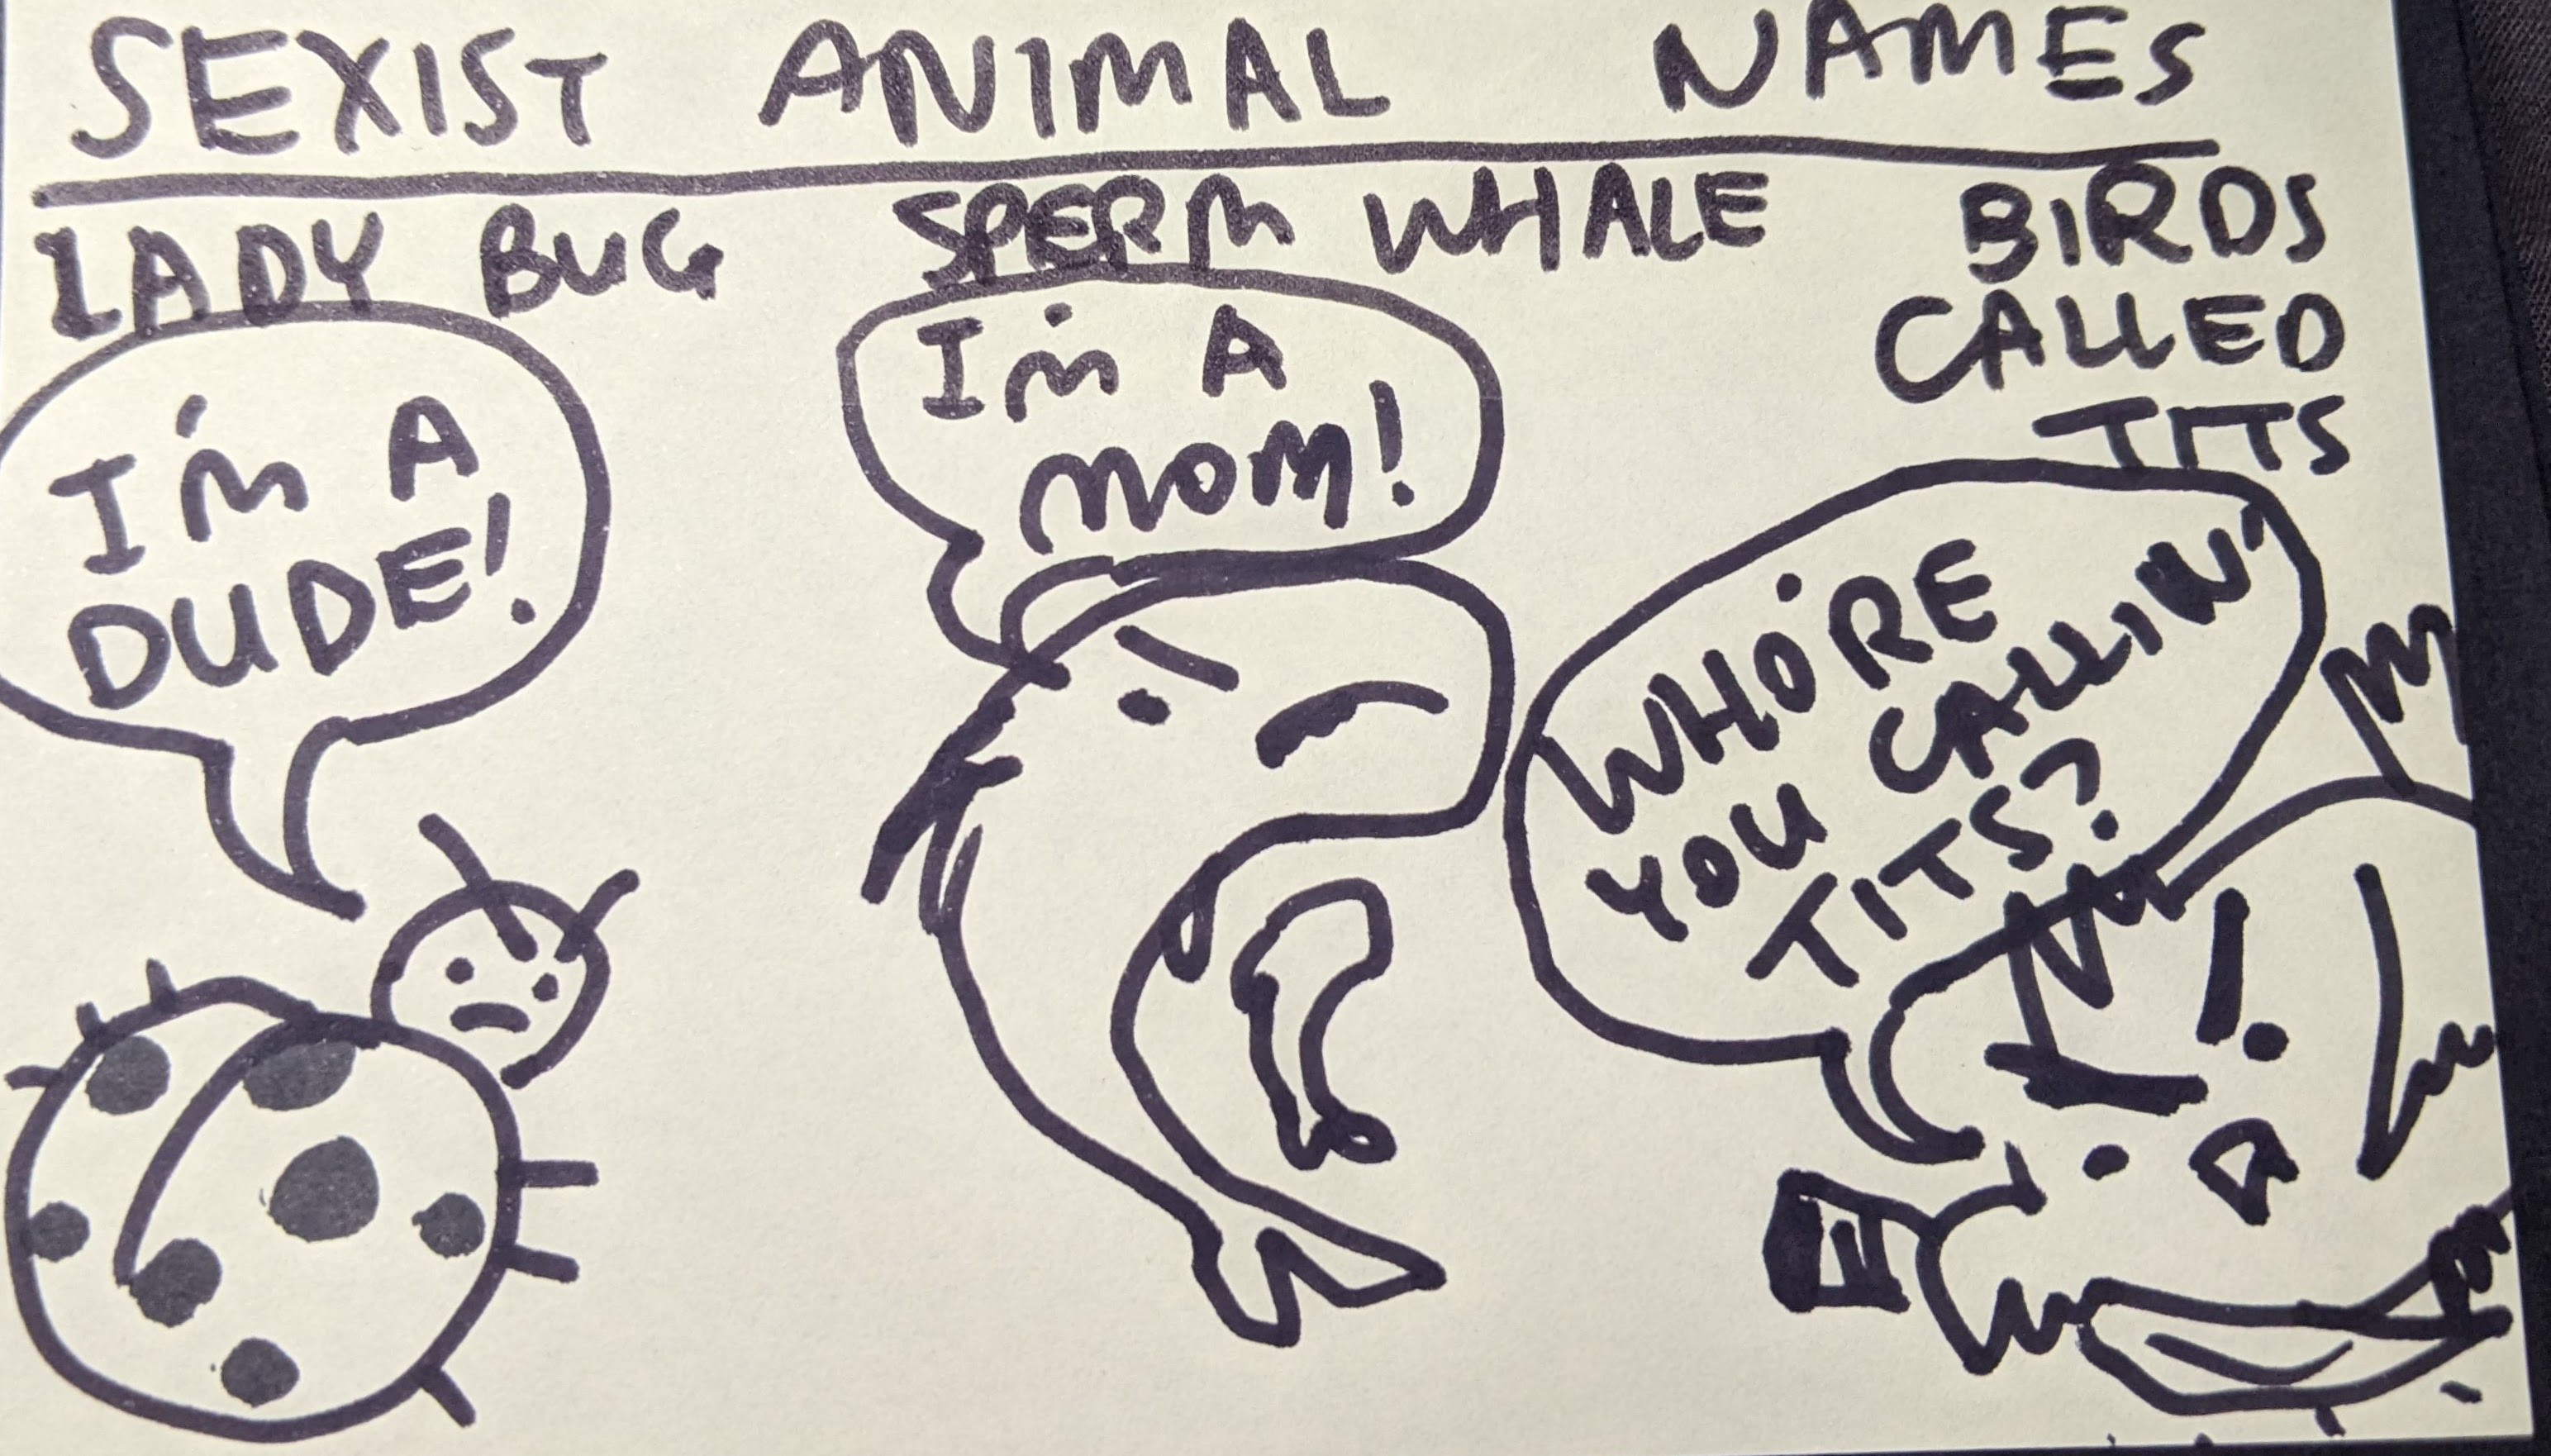 SEXIST ANIMAL NAMES
LADY BUG
I'M A
DUDE!
SPERM WHALE
I'M A
MOM!
BIRDS
CALLED
TITS
WHO'RE
YOU CALLIN'
TITS?